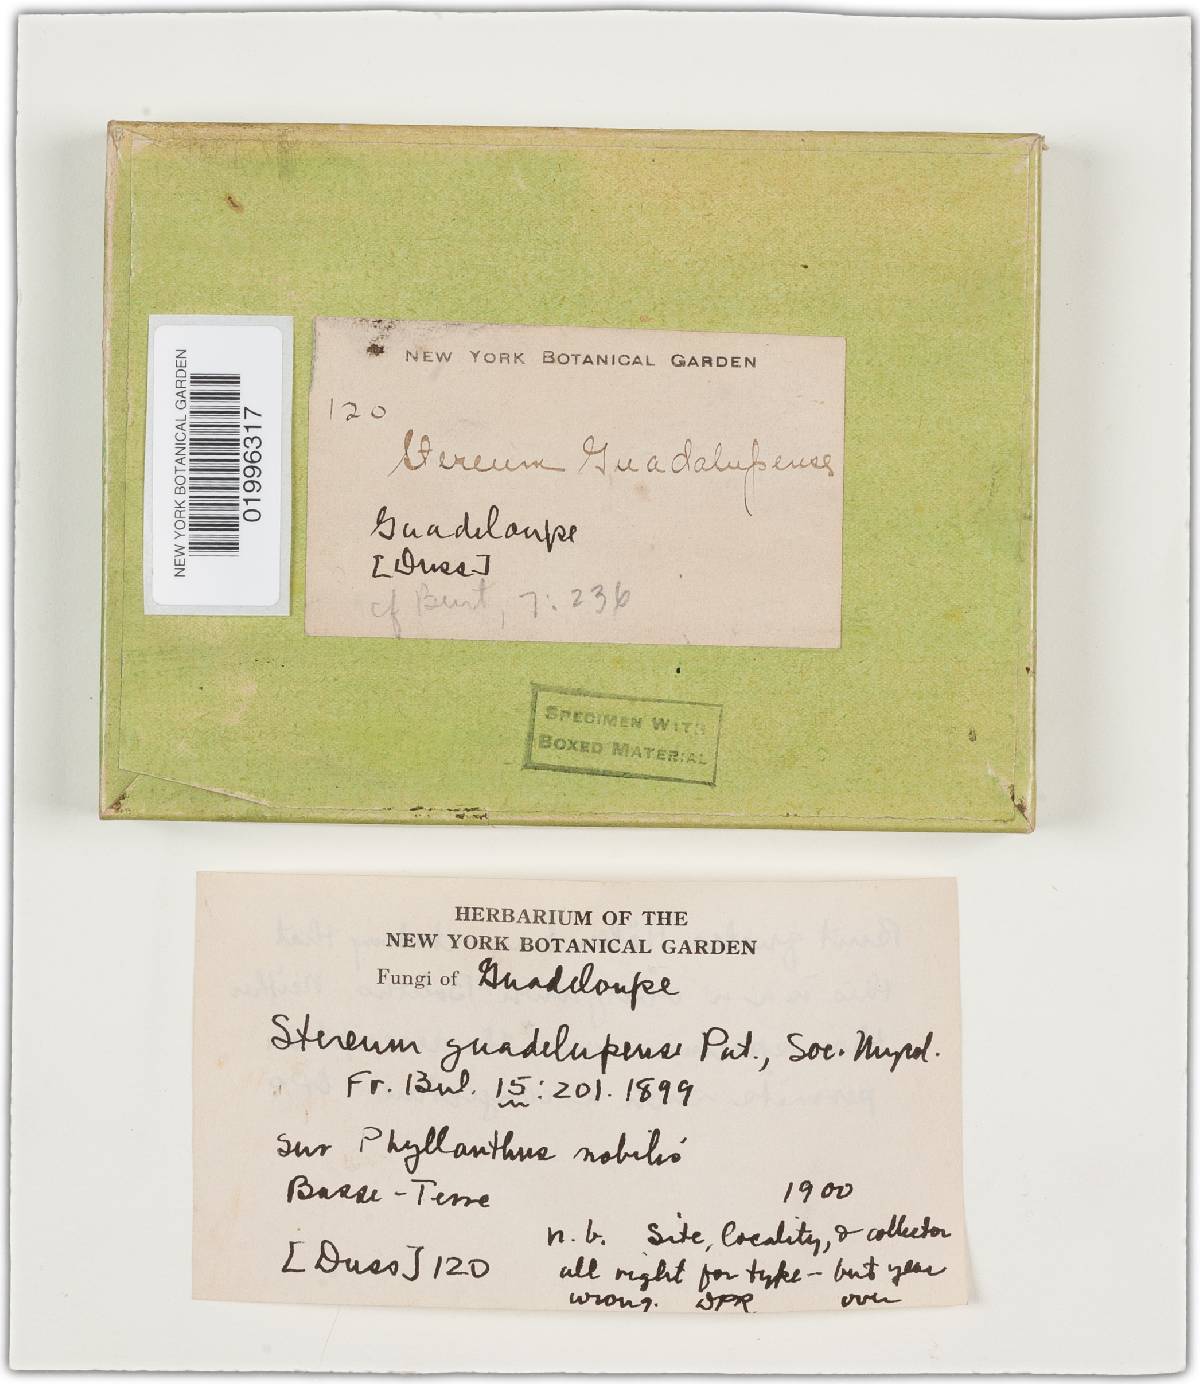 NEW YORK BOTANICAL GARDEN
01996317
NEW YORK BOTANICAL GARDEN
120
Stereum Guadalupense
Guadeloupe
[Duss]
cf Burt, 7: 236
SPECIMEN WITH
BOXED MATERIAL
HERBARIUM OF THE
NEW YORK BOTANICAL GARDEN
Fungi of Guadeloupe
Stereum guadelupense Pat., Soc. Mycol.
Fr. Bul. 15: 201. 1899
sur Phyllanthus nobilis
Basse-Terre 1900
n.b. Site, locality, & collector
[Duss] 120 all right for type – but year
wrong. DPR over